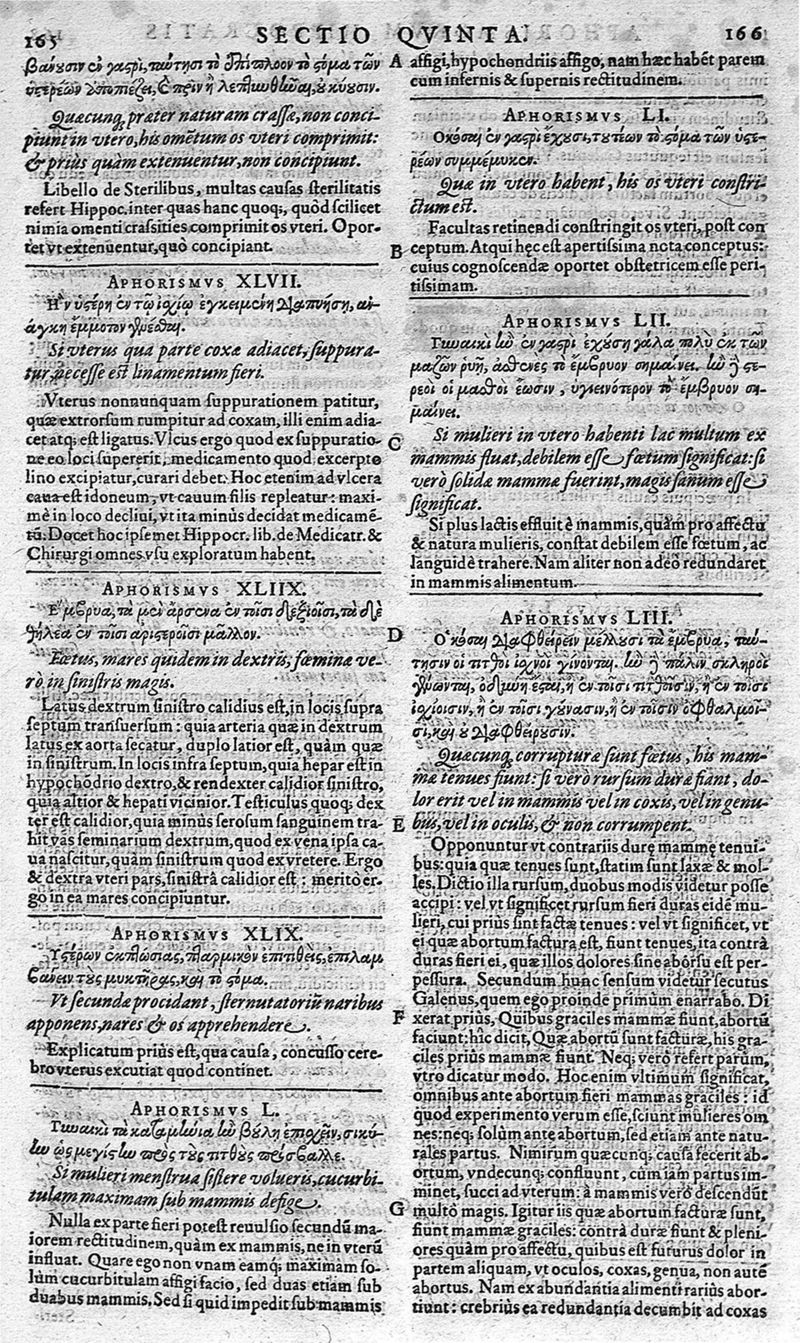 165 SECTIO QVINTA. 166
βάνουσιν ἐν γαστρὶ, ταύτῃσι τὸ ἐπίπλοον τὸ στόμα τῶν
ὑστερέων ἀποπιέζει, καὶ πρὶν ἢ λεπτυνθῆναι, οὐ κύουσιν.
Quæcunq; præter naturam crassæ, non conci-
piunt in vtero, his omẽtum os vteri comprimit:
& prius quàm extenuentur, non concipiunt.
Libello de Sterilibus, multas causas sterilitatis
refert Hippoc. inter quas hanc quoq;, quòd scilicet
nimia omenti crassities comprimit os vteri. Opor-
tet vt extenuentur, quò concipiant.
APHORISMVS XLVII.
Ἢν ὑστέρη ἐν τῷ ἰσχίῳ ἐγκειμένη διαπυήσῃ, ἀν-
άγκη ἔμμοτον γενέσθαι.
Si vterus qua parte coxæ adiacet, suppura-
tur, necesse est linamentum fieri.
Vterus nonnunquam suppurationem patitur,
quæ extrorsum rumpitur ad coxam, illi enim adia-
cet atq; est ligatus. Vlcus ergo quod ex suppuratio-
ne eo loci supererit, medicamento quod excerpto
lino excipiatur, curari debet. Hoc etenim ad vlcera
caua est idoneum, vt cauum filis repleatur: maxi-
mè in loco decliui, vt ita minùs decidat medicamẽ-
tũ. Docet hoc ipsemet Hippocr. lib. de Medicatr. &
Chirurgi omnes vsu exploratum habent.
APHORISMVS XLIIX.
Ἔμβρυα, τὰ μὲν ἄρσενα ἐν τοῖσι δεξιοῖσι, τὰ δὲ
θήλεα ἐν τοῖσι ἀριστεροῖσι μᾶλλον.
Fœtus, mares quidem in dextris, fœminæ ve-
rò in sinistris magis.
Latus dextrum sinistro calidius est, in locis supra
septum transuersum: quia arteria quæ in dextrum
latus ex aorta secatur, duplo latior est, quàm quæ
in sinistrum. In locis infra septum, quia hepar est in
hypochõdrio dextro, & ren dexter calidior sinistro,
quia altior & hepati vicinior. Testiculus quoq; dex
ter est calidior, quia minùs serosum sanguinem tra-
hit vas seminarium dextrum, quod ex vena ipsa ca-
ua nascitur, quàm sinistrum quod ex vretere. Ergo
& dextra vteri pars, sinistrâ calidior est: meritò er-
go in ea mares concipiuntur.
APHORISMVS XLIX.
Ὑστέρων ἐκπτώσιας, πταρμικὸν ἐπιτιθεὶς, ἐπιλαμ
βάνειν τοὺς μυκτῆρας, καὶ τὸ στόμα.
Vt secundæ procidant, sternutatoriũ naribus
apponens, nares & os apprehendere.
Explicatum prius est, qua causa, concusso cere-
bro vterus excutiat quod continet.
APHORISMVS L.
Γυναικὶ τὰ καταμήνια ἢν βούλῃ ἐπισχεῖν, σικύ-
ην ὡς μεγίστην πρὸς τοὺς τιτθοὺς πρόσβαλλε.
Si mulieri menstrua sistere volueris, cucurbi-
tulam maximam sub mammis defige.
Nulla ex parte fieri potest reuulsio secundũ ma-
iorem rectitudinem, quàm ex mammis, ne in vterũ
influat. Quare ego non vnam eamq; maximam so-
lùm cucurbitulam affigi facio, sed duas etiam sub
duabus mammis. Sed si quid impedit sub mammis
A affigi, hypochondriis affigo, nam hæc habẽt parem
cum infernis & supernis rectitudinem.
APHORISMVS LI.
Ὁκόσαι ἐν γαστρὶ ἔχουσι, τουτέων τὸ στόμα τῶν ὑστε-
ρέων συμμέμυκεν.
Quæ in vtero habent, his os vteri constri-
ctum est.
Facultas retinendi constringit os vteri, post con
B ceptum. Atqui hęc est apertissima nota conceptus:
cuius cognoscendæ oportet obstetricem esse peri-
tissimam.
APHORISMVS LII.
Γυναικὶ ἢν ἐν γαστρὶ ἐχούσῃ γάλα πολὺ ἐκ τῶν
μαζῶν ῥυῇ, ἀσθενὲς τὸ ἔμβρυον σημαίνει. ἢν δὲ στε-
ρεοὶ οἱ μαστοὶ ἔωσιν, ὑγιεινότερον τὸ ἔμβρυον ση-
μαίνει.
C Si mulieri in vtero habenti lac multum ex
mammis fluat, debilem esse fœtum significat: si
verò solidæ mammæ fuerint, magis sanum esse
significat.
Si plus lactis effluit è mammis, quàm pro affectu
& natura mulieris, constat debilem esse fœtum, ac
sanguinẽ trahere. Nam aliter non adeò redundaret
in mammis alimentum.
APHORISMVS LIII.
D Ὁκόσαι διαφθείρειν μέλλουσι τὰ ἔμβρυα, ταύ-
τῃσιν οἱ τιτθοὶ ἰσχνοὶ γίνονται. ἢν δὲ πάλιν σκληροὶ
γένωνται, ὀδύνη ἔσται, ἢ ἐν τοῖσι τιτθοῖσιν, ἢ ἐν τοῖσι
ἰσχίοισιν, ἢ ἐν τοῖσι γούνασιν, ἢ ἐν τοῖσιν ὀφθαλμοῖ-
σι, καὶ οὐ διαφθείρουσιν.
Quæcunq; corrupturæ sunt fœtus, his mam-
mæ tenues fiunt: si verò rursum duræ fiant, do-
lor erit vel in mammis vel in coxis, vel in genu-
E bus, vel in oculis, & non corrumpent.
Opponuntur vt contrariis durę mammę tenui-
bus: quia quæ tenues sunt, statim sunt laxæ & mol-
les. Dictio illa rursum, duobus modis videtur posse
accipi: vel vt significet rursum fieri duras eidẽ mu-
lieri, cui prius sint factæ tenues: vel vt significet, vt
ei quæ abortum factura est, fiunt tenues, ita contrà
duras fieri ei, quæ illos dolores sine aborsu est per-
pessura. Secundum hunc sensum videtur secutus
Galenus, quem ego proinde primùm enarrabo. Di
F xerat prius, Quibus graciles mammæ fiunt, abortũ
faciunt: hîc dicit, Quæ abortũ sunt facturæ, his gra-
ciles prius mammæ fiunt. Neq; verò refert parum,
vtro dicatur modo. Hoc enim vltimum significat,
omnibus ante abortum fieri mammas graciles: id
quod experimento verum esse, sciunt mulieres om
nes: neq; solùm ante abortum, sed etiam ante natu-
rales partus. Nimirum quæcunq; causa fecerit ab-
ortum, vndecunq; confluunt, cùm iam partus im-
minet, succi ad vterum: à mammis verò descendũt
G multò magis. Igitur iis quæ abortum facturæ sunt,
fiunt mammæ graciles: contrà duræ fiunt & pleni-
ores quàm pro affectu, quibus est futurus dolor in
partem aliquam, vt oculos, coxas, genua, non autẽ
abortus. Nam ex abundantia alimenti rarius abor-
tiunt: crebrius ea redundantia decumbit ad coxas